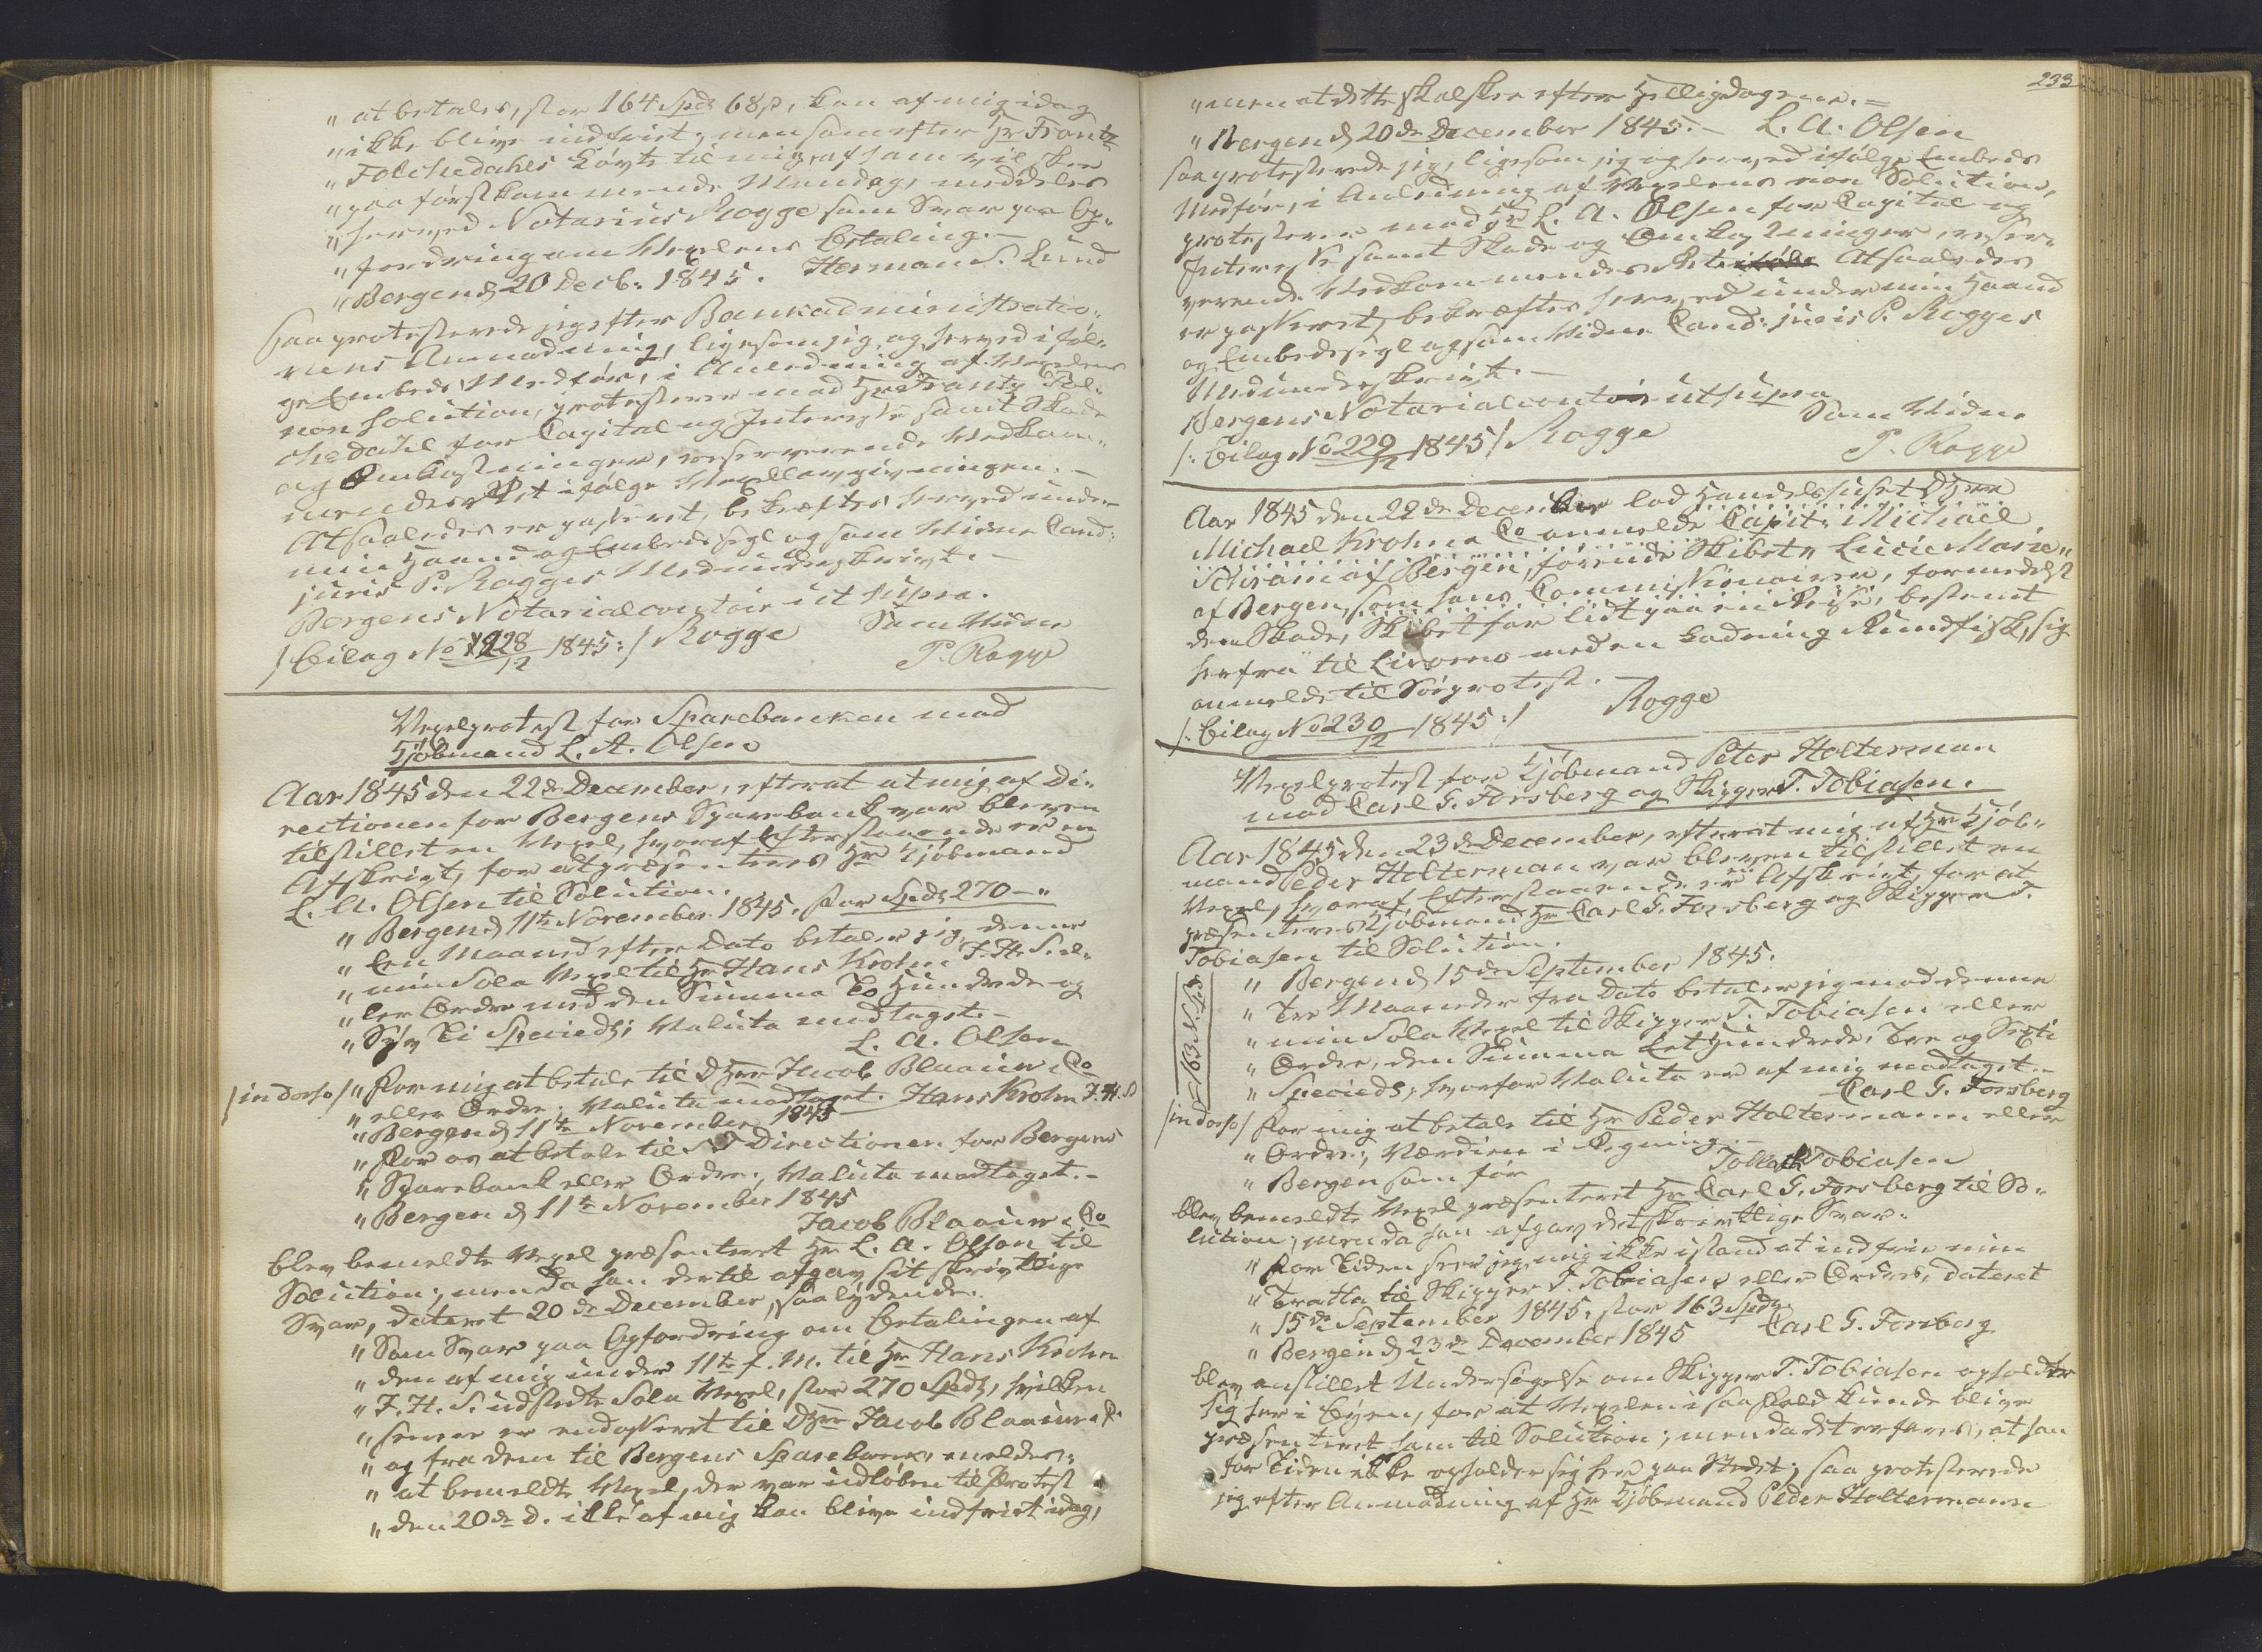 „ at betales, stor 164 Spd 68 ß, kan af mig idag
„ ikke blive indfriet, men som efter Hr Frantz
„ Folchedahls Løvte til mig, af ham vil skee
„ paa førstkommende Mandag, meddeles
„ herved Notarius Rogge som Svar paa Op-
„ fordring om Vexelens Betaling. –
„ Bergen d 20 Decb: 1845. Herman S. Lund
saa protesterede jeg efter Bankadministratio-
nens Anmodning, ligesom jeg og herved iføl-
ge Embeds Medfør, i Anledning af Vexelens
non Solution, protesterer mod Hr Frantz Fol-
chedahl for Capital og Interesse samt Skade
og Omkostninger, reserverende Vedkom-
mendes Ret ifølge Vexellovgivningen. –
At saaledes er passeret, bekræftes herved under
min Haand og Embedssegl og som Vidne Cand:
juris P. Rogges Medunderskrivt. –
Bergens Notarialcontoir ut supra.
Som Vidne
/: Bilag No 228/12 1845 :/ Rogge
P. Rogge
Vexelprotest for Sparebanken mod
Kjøbmand L. A. Olsen
Aar 1845 den 22de December, efterat at mig af Di-
rectionen for Bergens Sparebank var bleven
tilstillet en Vexel, hvoraf Efterstaaende er en
Afskrivt, for at præsenteres Hr Kjøbmand
L. A. Olsen til Solution.
„ Bergen d 11te November 1845. stor Spd 270 – „
„ Een Maaned efter Dato betaler jeg denne
„ min Sola Vexel til Hr Hans Krohn J. H. S. el-
„ ler Ordre med den Summa To Hundrede og
„ Syv Ti Specied; Valuta modtaget. –
L. A. Olsen
/in dorso/ „ For mig at betale til DHrr Jacob Blaauw & Co
„ eller Ordre; Valuta modtaget. Hans Krohn J. H. S
„ Bergen d 11te November 1845
„ For os at betale til S. T. Directionen for Bergens
„ Sparebank eller Ordre; Valuta modtaget. –
„ Bergen d 11te November 1845
Jacob Blaauw & Co
blev bemeldte Vexel præsenteret Hr L. A. Olsen til
Solution; men da han dertil afgav sit skrivtlige
Svar, dateret 20de December, saalydende:
„ Som Svar paa Opfordring om Betalingen af
„ den af mig under 11te f. M. til Hr Hans Krohn
„ J. H. S. udstedte Sola Vexel, stor 270 Spd, hvilken
„ senere er endosseret til DHrr Jacob Blaauw & C.
„ og fra dem til Bergens Sparebank, meldes:
„ at bemeldte Vexel, der var udløben til Protest
„ den 20de d. ikke af mig kan blive indfriet idag,
233
„ men at dette skal skee efter Helligdagene. =
„ Bergen d 20de December 1845. – L. A. Olsen
saa protesterede jeg, ligesom jeg og herved ifølge Embeds
Medfør, i Anledning af Vexelens non Solution,
protesterer mod Hr L. A. Olsen for Capital og
Interesse samt Skade og Omkostninger, reser-
verende Vedkommendes Ret At saaledes
er passeret, bekræftes herved under min Haand
og Embedssegl og som Vidne Cand: juris P. Rogges
Medunderskrivt. –
Bergens Notarialcontoir ut supra
Som Vidne
/: Bilag No 229/12 1845 :/ Rogge
P. Rogge
Aar 1845 den 22de December lod Handelshuset DHrr
Michael Krohn & Co anmelde Capit: Michael
Schram af Bergen, førende Skibet „ Lucie Marie „
af Bergen, som hans Commissionairer, formedelst
den Skade, Skibet har lidt paa en Reise, bestemt
herfra til Livorno med en Ladning Rundfisk, sig
anmelde til Søeprotest.
/: Bilag No 230/12 1845 :/ Rogge
Vexelprotest for Kjøbmand Peter Holterman
mod Carl G. Forsberg og Skipper T. Tobiasen.
Aar 1845 den 23de December, efterat mig af Hr Kjøb-
mand Peder Holterman var bleven tilstillet en
Vexel, hvoraf Efterstaaende er en Afskrivt, for at
præsenteres Kjøbmand Hr Carl G. Forsberg og Skipper T.
Tobiasen til Solution.
„ Bergen d 15de September 1845.
„ Tre Maaneder fra Dato betaler jeg mod denne
„ min Sola Vexel til Skipper T. Tobiasen eller
„ Ordre, den Summa Eet Hundrede, Tre og Sexti
„ Specied; hvorfor Valuta er af mig modtaget. –
Carl G. Forsberg
/in dorso/ For mig at betale til Hr Peder Holtermann eller
„ Ordre; Værdien i Regning. –
„ Bergen som før Tollak Tobiasen
blev bemeldte Vexel præsenteret Hr Carl G. Forsberg til So-
lution; men da han afgav det skrivtlige Svar:
„ For Tiden seer jeg mig ikke istand at indfrie min
„ Tratta til Skipper T. Tobiasen eller Ordres, dateret
„ 15de September 1845, stor 163 Spd.
„ Bergen d 23de December 1845 Carl G. Forsberg
blev anstillet Undersøgelse om Skipper T. Tobiasen opholdte
sig her i Byen, for at Vexelen i saa Fald kunde blive
præsenteret ham til Solution; men da det erfares, at han
for Tiden ikke opholder sig her paa Stedet; saa protesterede
jeg efter Anmodning af Hr Kjøbmand Peder Holtermann